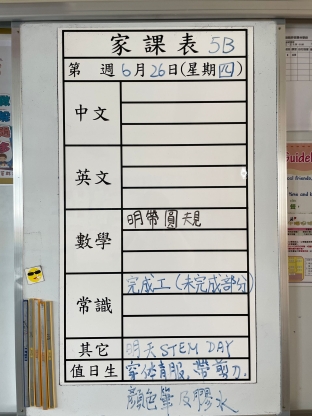 家課表 5B
第 週 6月26日(星期四)
中文
英文
數學 明帶圓規
常識 完成工(未完成部分)
其它 明天 STEM DAY
值日生 穿体育服, 帶剪刀,
顏色筆及膠水